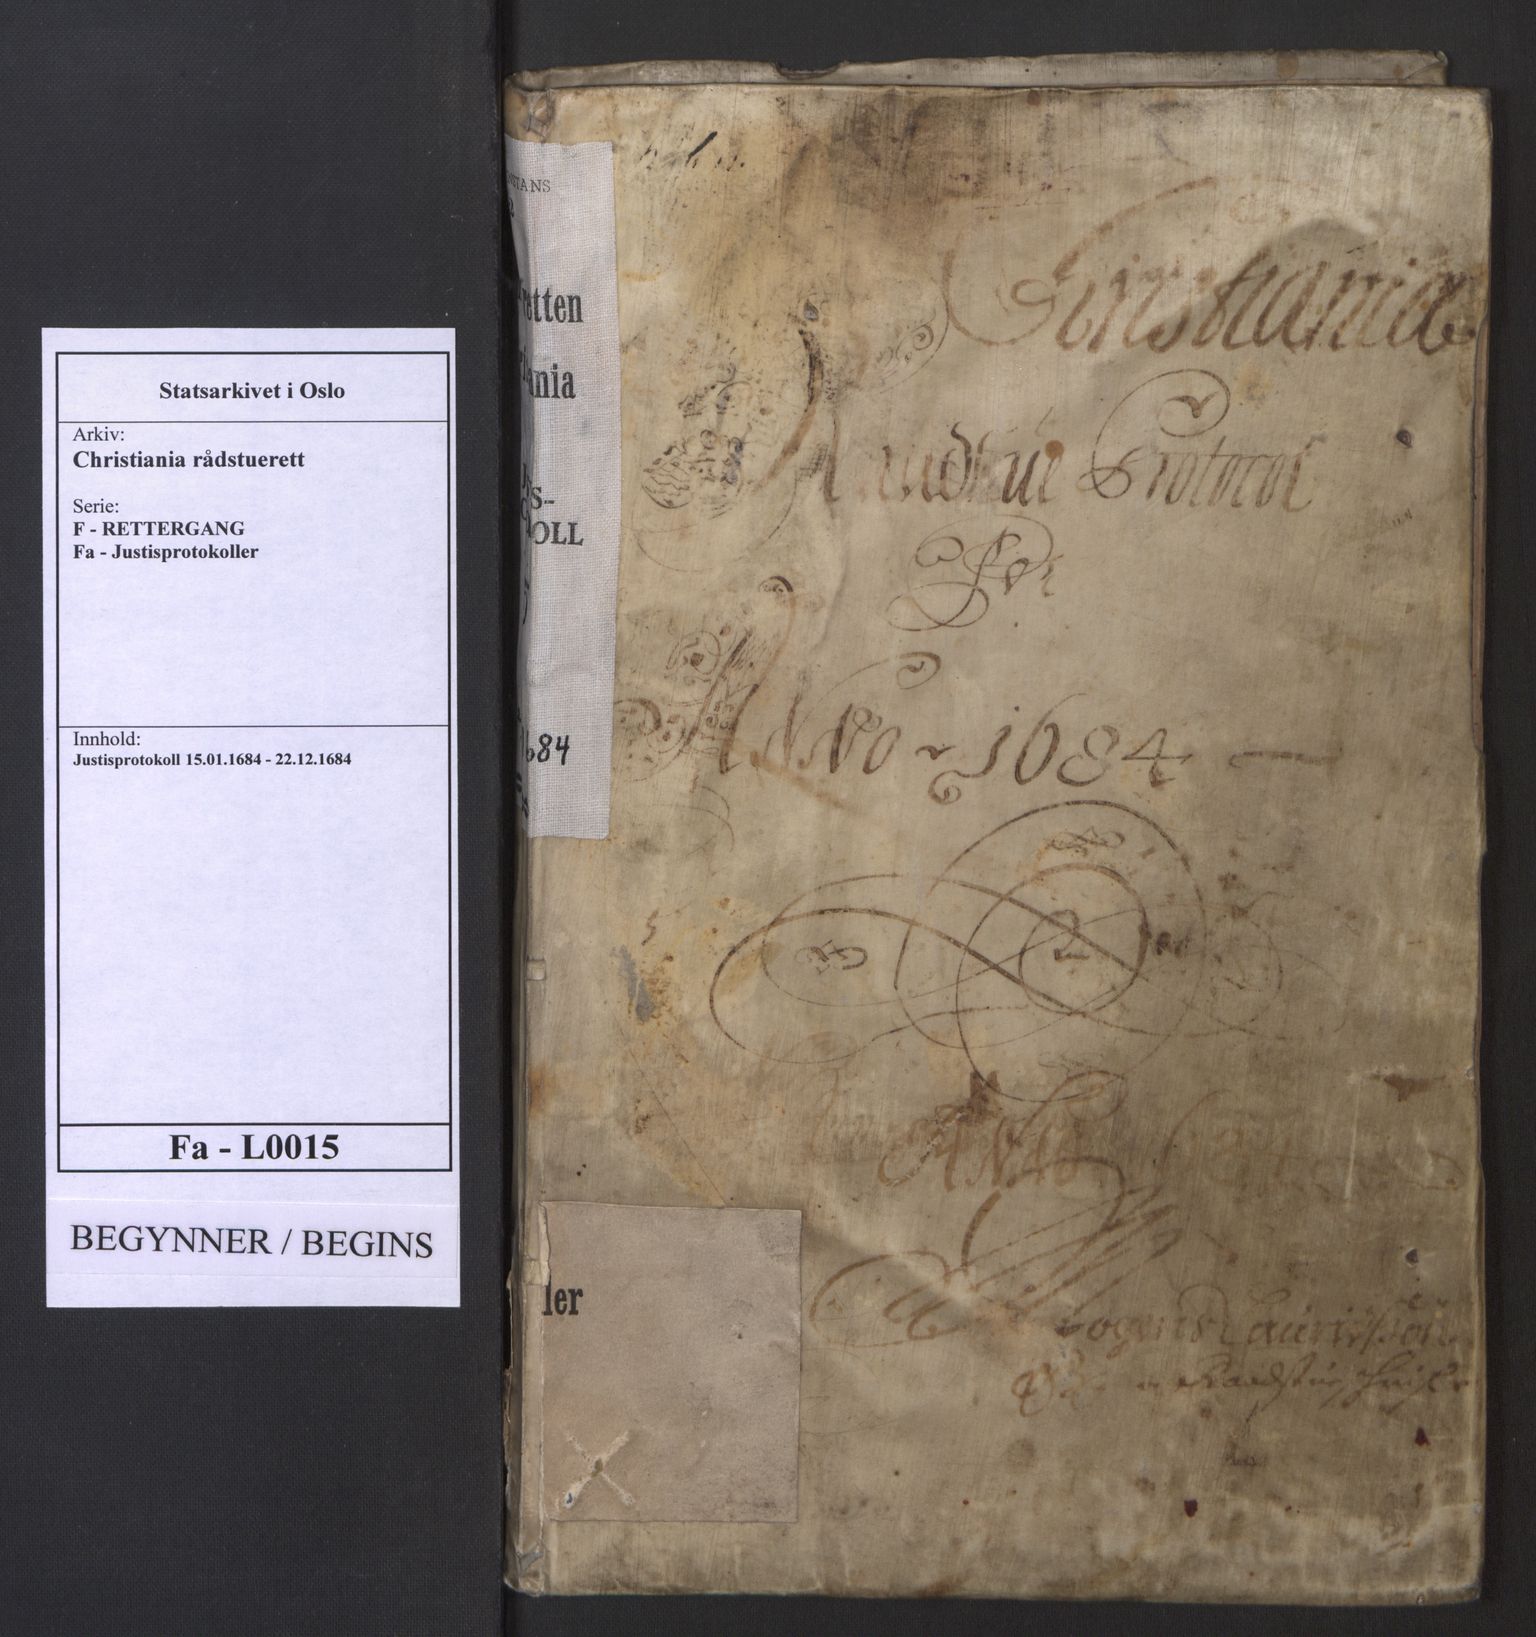 Statsarkivet i Oslo
Arkiv:
Christiania rådstuerett
Serie:
F - RETTERGANG
Fa - Justisprotokoller
Innhold:
Justisprotokoll 15.01.1684 - 22.12.1684
Fa - L0015
BEGYNNER / BEGINS
STANS
retten
iania
s-
OLL
684
ler
Christianiæ
Raadstue Protocol
For
Anno 1684
Anno
Mogens Lauritssøn
Raadstueskriffuer